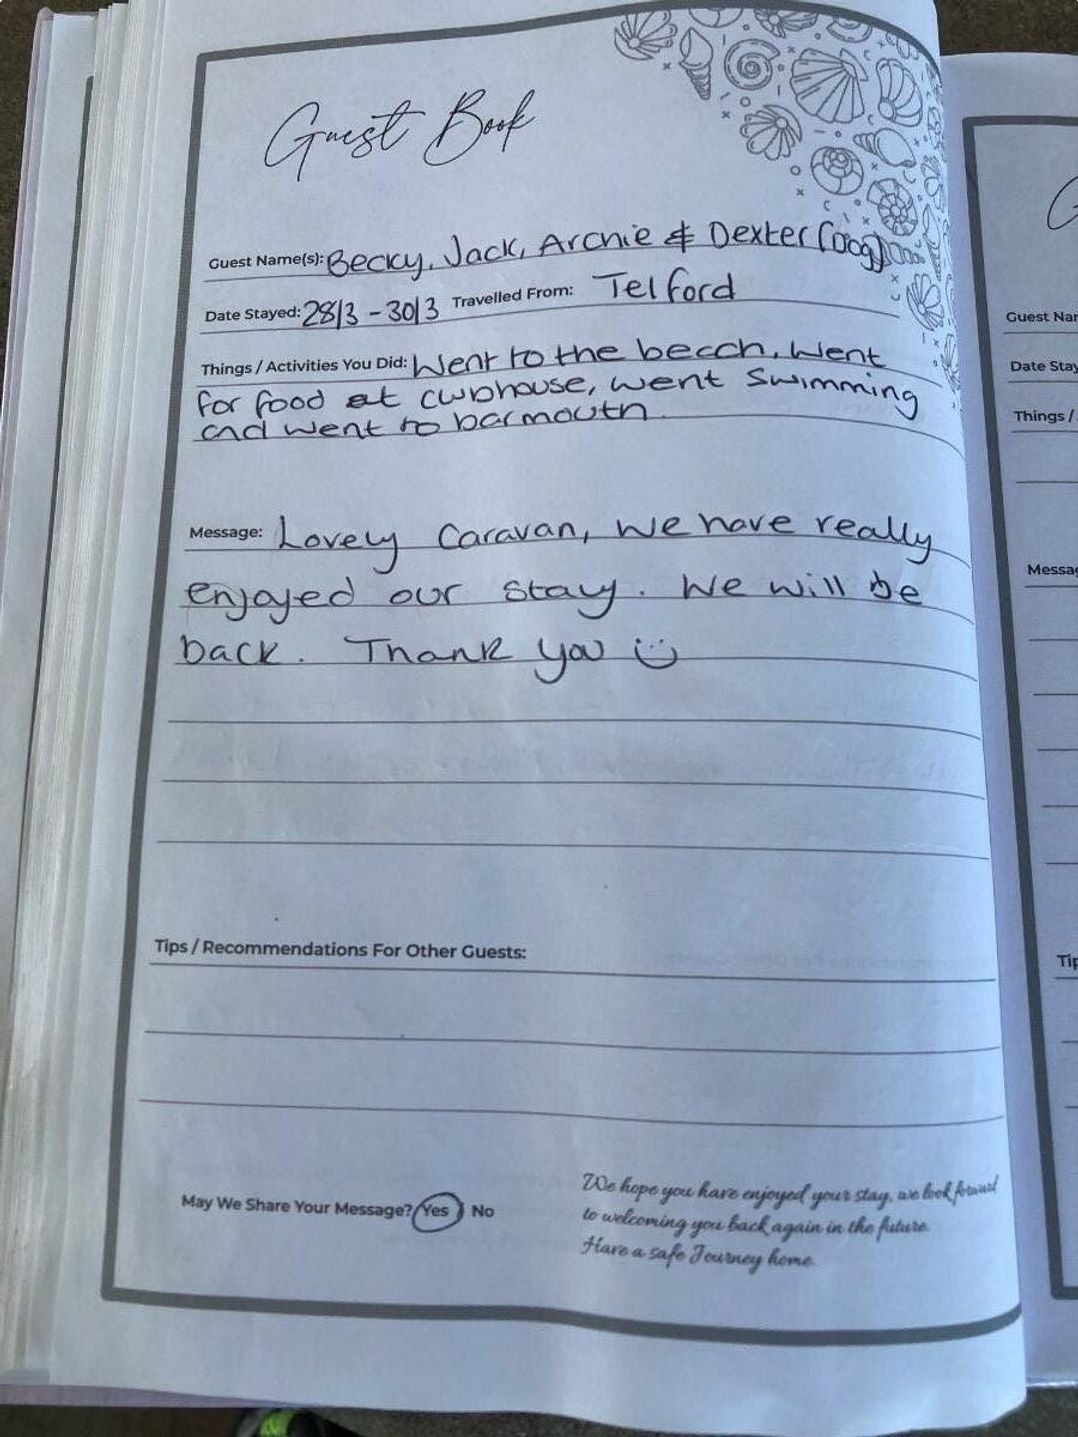 Guest Book
Guest Name(s): Becky, Jack, Archie & Dexter (dog)
Date Stayed: 28/3 - 30/3 Travelled From: Telford
Things / Activities You Did: Went to the beach, Went
for food at clubhouse, went Swimming
and went to barmouth.
Message: Lovely Caravan, We have really
enjoyed our stay. We will be
back. Thank you :)
Tips / Recommendations For Other Guests:
May We Share Your Message? Yes No
We hope you have enjoyed your stay, we look forward
to welcoming you back again in the future.
Have a safe Journey home.
G
Guest Nar
Date Stay
Things /
Messag
Tip